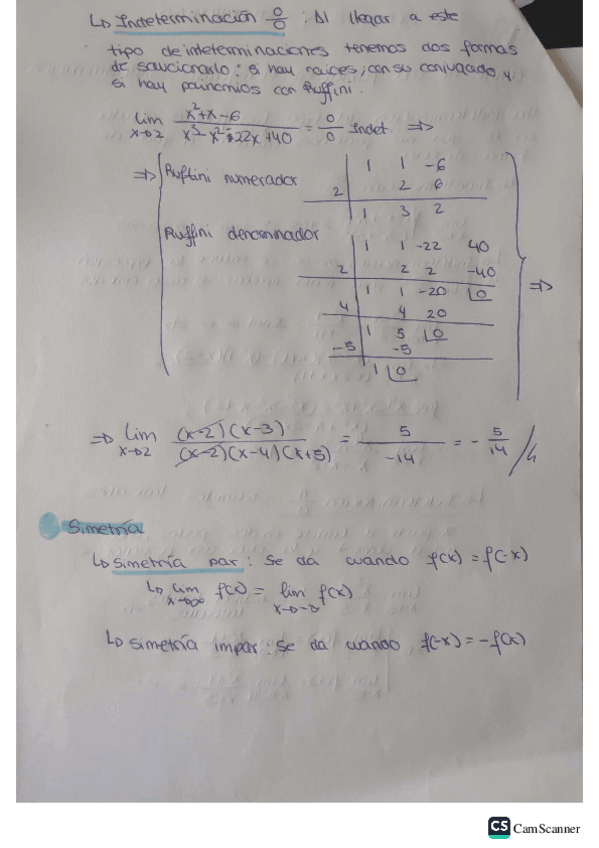 ↳ Indeterminación 0/0 : Al llegar a este
tipo de inteterminaciones tenemos dos formas
de solucionarlo: si hay raices, con su conjugado y
si hay polinomios con Ruffini.
lim x→2 x²+x-6 / x³-x²-22x+40 = 0/0 Indet. ⇒
⇒ Ruffini numerador
1 1 -6
2 2 6
1 3 2
Ruffini denominador
1 1 -22 40
2 2 2 -40
1 1 -20 0
4 4 20
1 5 0
-5 -5
1 0
⇒
⇒ lim x→2 (x-2)(x-3) / (x-2)(x-4)(x+5) = 5 / -14 = - 5/14
Simetría
↳ Simetría par: Se da cuando f(x) = f(-x)
↳ lim x→∞ f(x) = lim x→-∞ f(x)
↳ Simetría impar: Se da cuando f(-x) = -f(x)
CS CamScanner